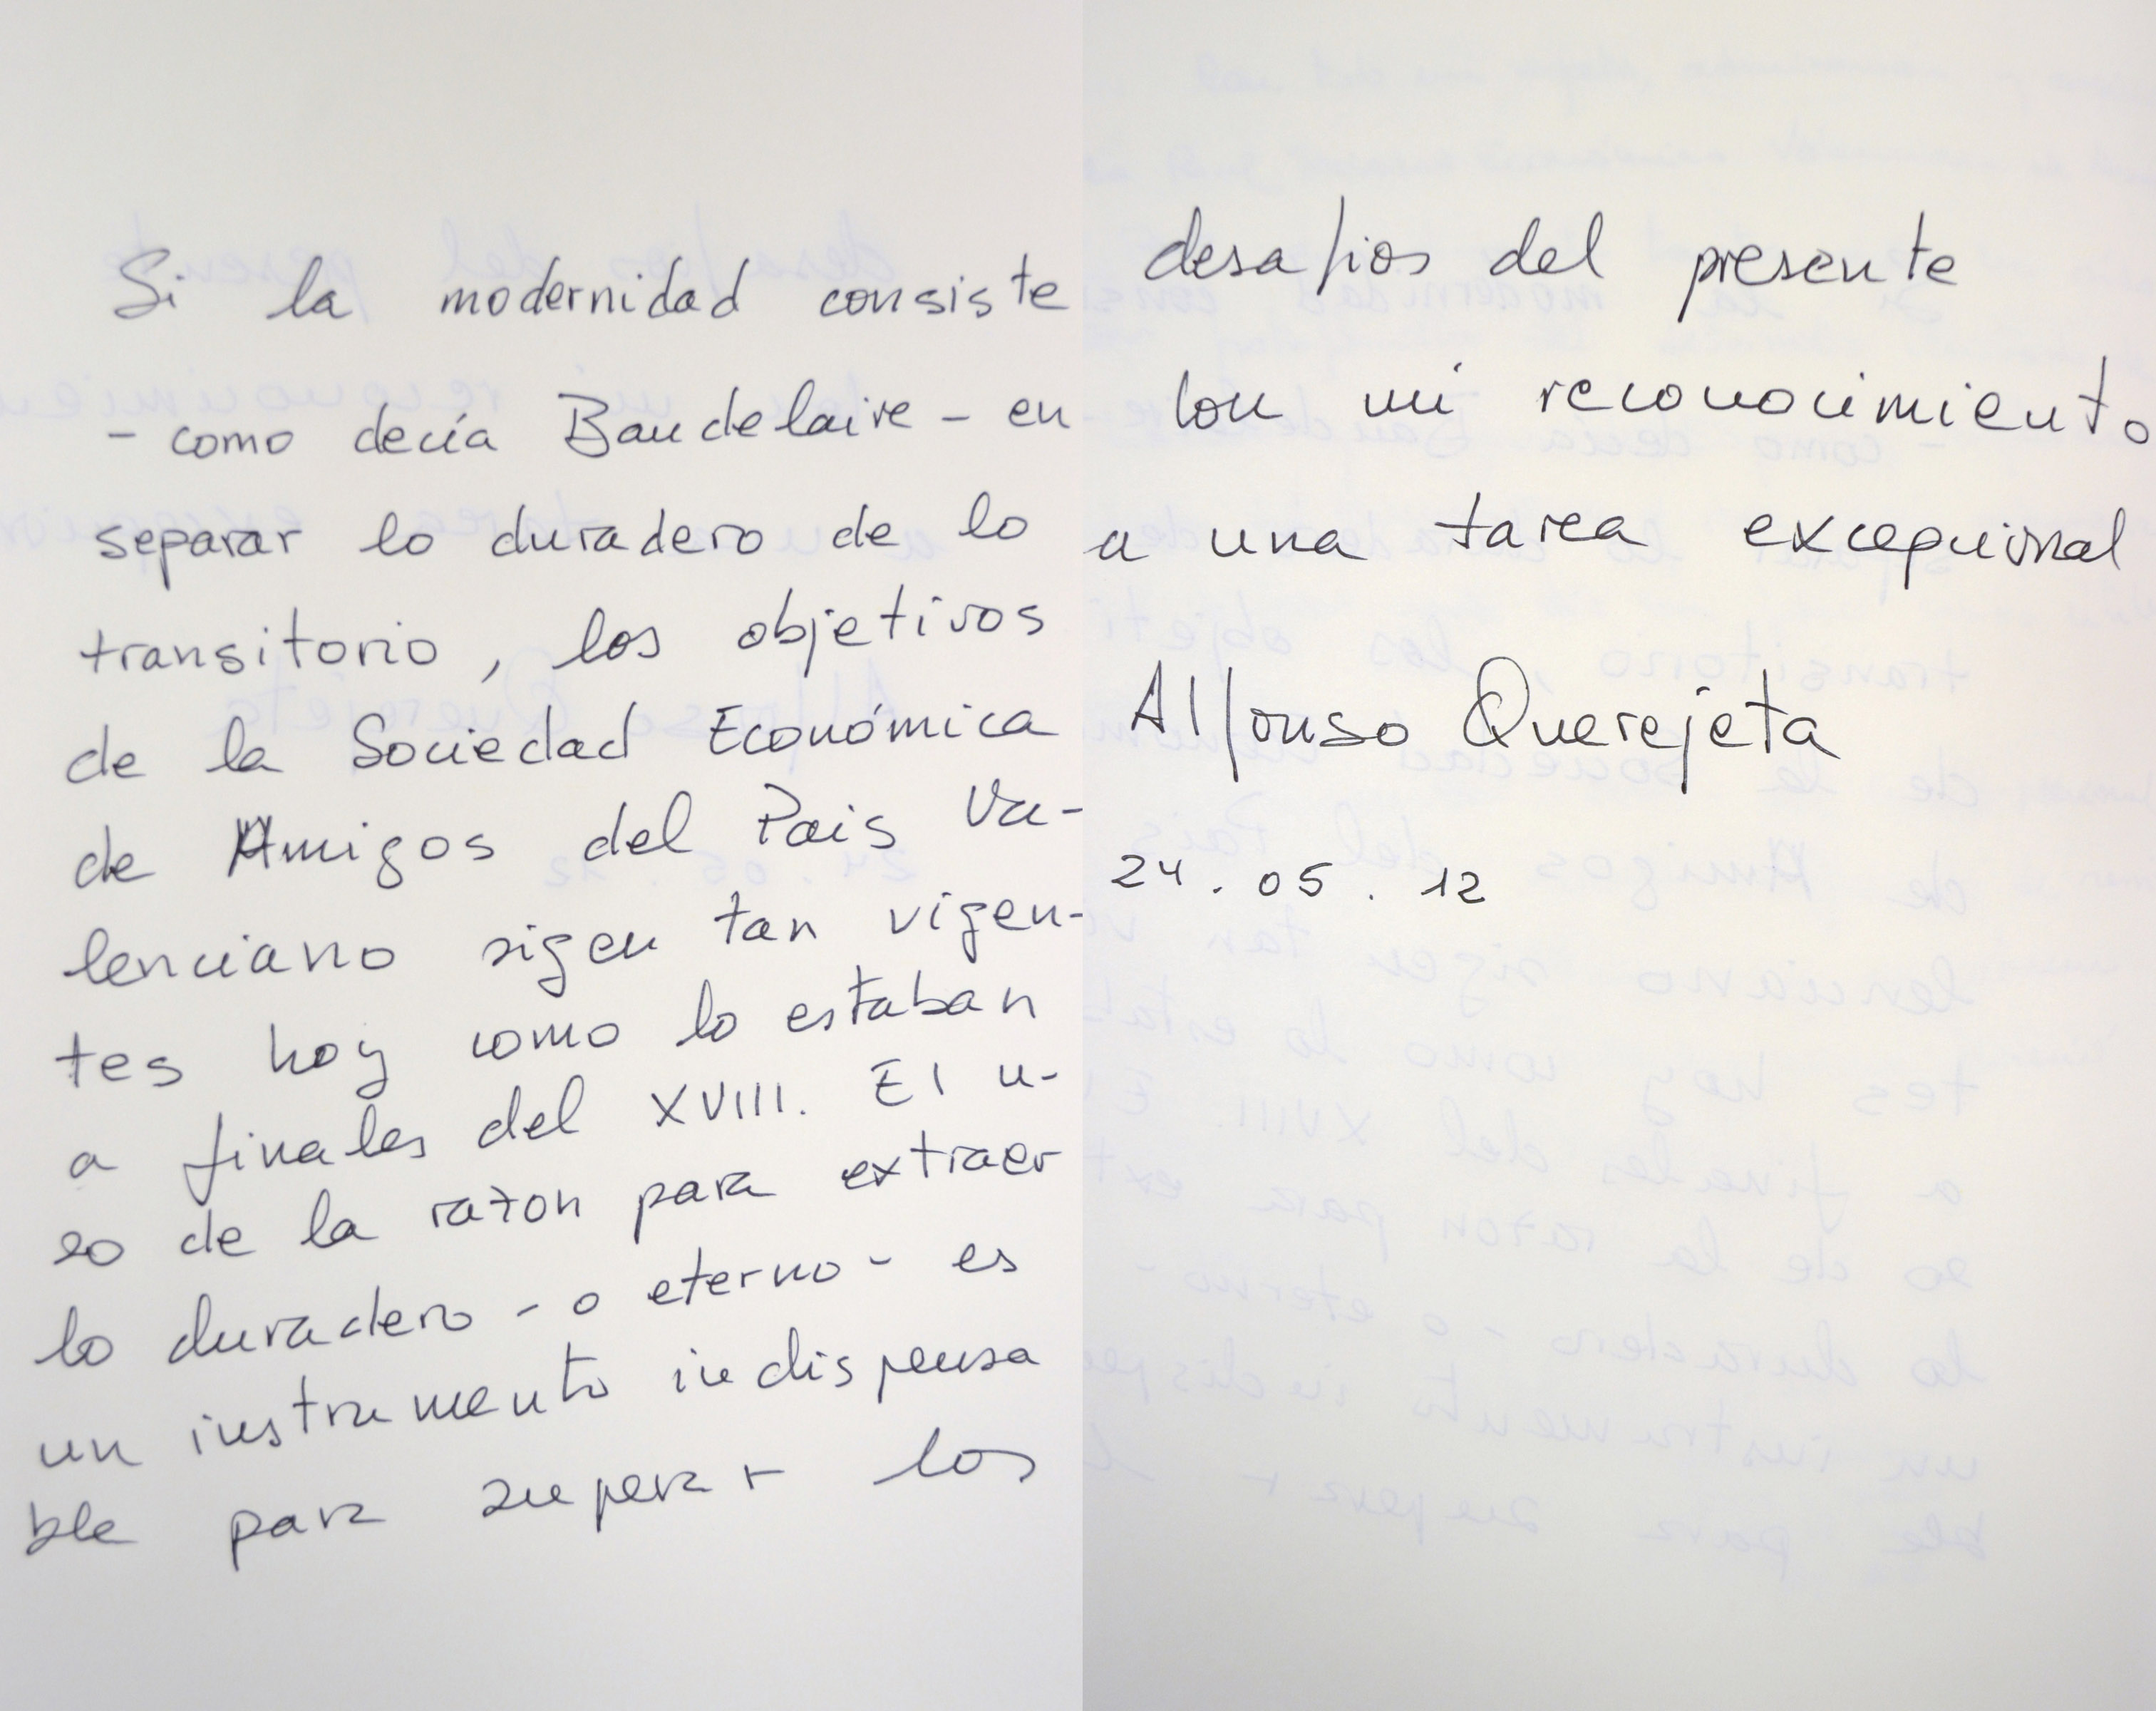 Si la modernidad consiste
- como decía Baudelaire - en
separar lo duradero de lo
transitorio, los objetivos
de la Sociedad Económica
de Amigos del Pais Va-
lenciano sigen tan vigen-
tes hoy como lo estaban
a finales del XVIII. El u-
so de la razon para extraer
lo duradero - o eterno - es
un instrumento indispensa
ble para superar los
desafios del presente
Con mi reconocimiento
a una tarea excepcional
Alfonso Querejeta
24.05.12